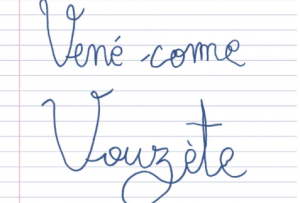 Vené come
Vouzète